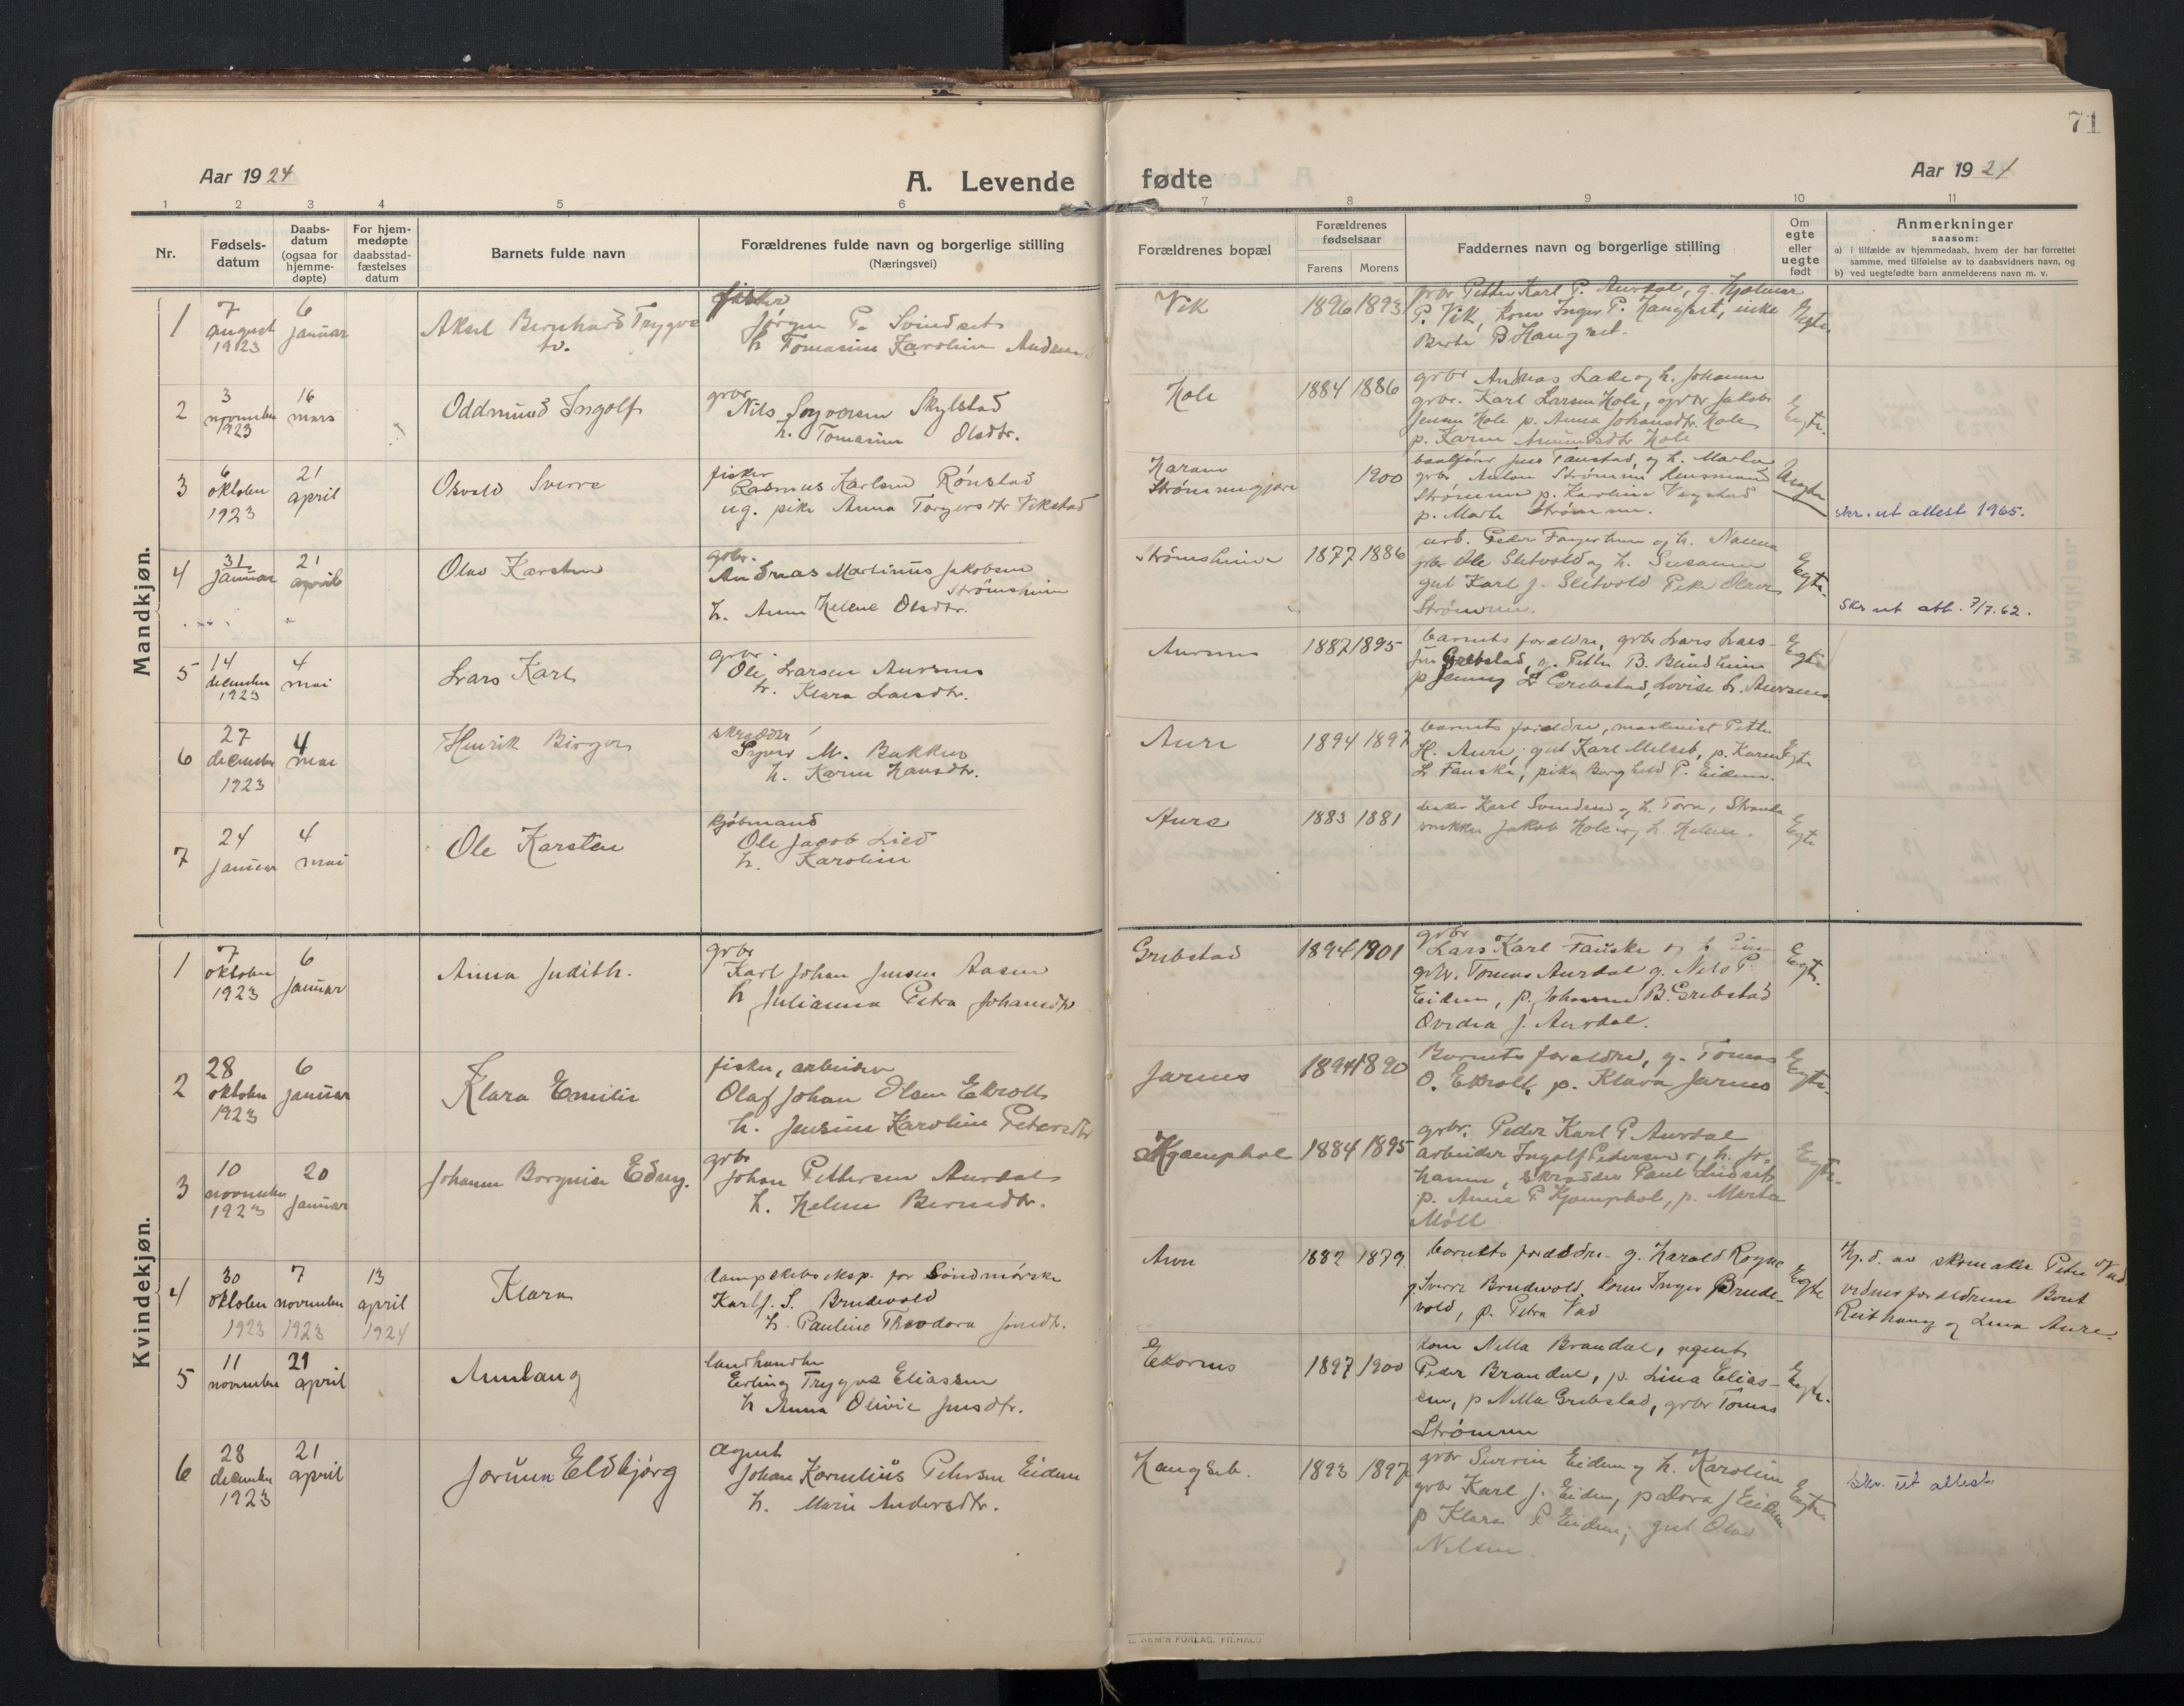 71
Aar 1924
A. Levende fødte
Aar 1924
1 2 3 4 5 6 7 8 9 10 11
Nr.
Fødsels-
datum
Daabs-
datum
(ogsaa for
hjemme-
døpte)
For hjem-
medøpte
daabsstad-
fæstelses
datum
Barnets fulde navn
Forældrenes fulde navn og borgerlige stilling
(Næringsvei)
Forældrenes bopæl
Forældrenes
fødselsaar
Farens Morens
Faddernes navn og borgerlige stilling
Om
egte
eller
uegte
født
Anmerkninger
saasom:
a) i tilfælde av hjemmedaab, hvem der har forrettet
samme, med tilføielse av to daabsvidners navn, og
b) ved uegtefødte barn anmelderens navn m. v.
Mandkjøn.
1
7
august
1923
6
januar
Aksel Bernhard Trygve
tv.
fisker
Jørgen P. Svindset
h Tomasine Karoline
Vik
1896 1893
grbr Petter Karl P. Aurdal, g. Hjalmar
P. Vik, kone Inger P. Haugset, enke
Berte P Haugset.
Egte
2
3
november
1923
16
mars
Oddmund Ingolf
grbr
Nils Skylstad
h. Tomasine Olsdtr.
Hole
1884 1886
grbr Andreas Lade og h. Johanne
grbr. Karl Larsen Hole, grbr Jakob
Jensen Hole p. Anna Johansdtr. Hole
p. Karen Amundsdtr Hole
Egte.
3
6
oktober
1923
21
april
Osvald Sverre
fisker
Rasmus Karlsen Rønstad
ug. pike Anna Torgersdtr Vikstad
Haram
1900
grbr. Anton Strømme
Strømmen p. Karoline
p. Marte Strømmen.
Uegte
skr. ut attest 1965.
4
31
januar
21
april
Olav Karsten
grbr.
Andreas Martinus Jakobsen
Strømsheim
h. Anne Helene Olsdtr.
Strømsheim
1877 1886
Peder Fagerheim og h. Nanna
grbr Ole Slitvold og h. Susanne
gut Karl J. Slitvold Pike
Strømmen.
Egte.
Skr. ut att. 7/7.62.
5
14
december
1923
4
mai
Lars Karl
grbr.
Ole Larsen Aursnes
h. Klara Larsdtr.
Aursnes
1887 1895
barnets forældre, grbr Lars Lars-
sen Grebstad, g. Petter B. Blindheim
p Jenny L Grebstad, Lovise L. Aursnes
Egte
6
27
december
1923
4
mai
Henrik Birger
skrædder
Syver M. Bakken
h. Karen Hansdtr.
Aure
1894 1897
barnets forældre, maskinist Petter
H. Aure, gut Karl Melset, p. Karen
L Fauske, pike Borghild P. Eidem.
Egte
7
24
januar
4
mai
Ole Karsten
kjøbmand
Ole Jacob Lied
h. Karoline
Aure
1883 1881
Karl Svendsen og h. Tora, Stranda
Jakob Hole og h. Helene.
Egte
Kvindekjøn.
1
7
oktober
1923
6
januar
Anna Judith.
grbr
Karl Johan Jensen Aasen
h Julianna Petra Johansdtr
Grebstad
1894 1901
grbr
Lars Karl Fauske og h.
grbr. Tomas Aurdal g. Nils P.
Eidem, p. Johanne B. Grebstad
Ovedia J. Aurdal.
Egte.
2
28
oktober
1923
6
januar
Klara Emilie
fisker, arbeider
Olaf Johan Olsen Ekroll
h. Jensine Karoline Petersdtr
Jarnes
1894 1890
Barnets forældre, g. Tomas
O. Ekroll, p. Klara Jarnes
Egte.
3
10
november
1923
20
januar
Johanne Borgnise Edny.
grbr
Johan Pettersen Aurdal
h. Helene Berntsdtr.
Kjæmphol
1884 1895
grbr. Peder Karl P Aurdal
arbeider Ingolf Pedersen og h. Jo-
hanne, skrædder Paul Lindset
p. Anne P Kjæmphol, p. Marta
Moll
Egte.
4
30
oktober
1923
7
november
1923
13
april
1924
Klara
dampskibseksp. for Søndmørske
Karl J. S. Brudevold
h. Pauline Theodora Jonsdtr.
Aure
1882 1879
barnets forældre. g. Harald Rogne
g. Sverre Brudevold, kone Inger Brude-
vold, p. Petra Vad
Egte
Hj. d. av skomaker Peter Vad
vidner forældrene Bernt
Reithaug og Lina Aure.
5
11
november
21
april
Annlaug
landhandler
Erling Trygve Eliassen
h Anna Olivie Jensdtr.
Ekornes
1897 1900
kone Nella Brandal, agent
Peder Brandal, p. Lina Elias-
sen, p Nella Grebstad, grbr Tomas
Strømmen
Egte.
6
28
december
1923
21
april
Jorunn Eldbjørg
Agent
Johan Kornelius Petersen Eidem
h. Marie Andersdtr.
Haugset.
1893 1897
grbr Severin Eidem og h. Karoline
grbr Karl J. Eidem, p Dora J Eidem
p Klara P Eidem, gut Olav
Nilsen.
Egte
skr. ut attest
E. SEM'S FORLAG, FR.HALD